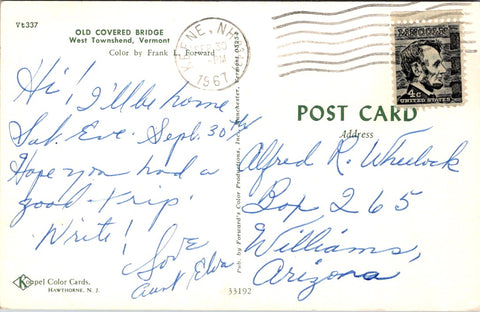 Vt337
OLD COVERED BRIDGE
West Townshend, Vermont
Color by Frank L. Forward
KEENE, N.H.
PM
1967
LINCOLN
4c
UNITED STATES
Hi! I'll be home
Sat. Eve. Sept. 30th
Hope you had a
good trip.
Write!
Love
Aunt Elva
Pub. by Forward's Color Productions, Inc., Manchester, Vermont 05255
POST CARD
Address
Alfred R. Wheelock
Box 265
Williams,
Arizona
K
Koppel Color Cards.
HAWTHORNE, N. J.
33192